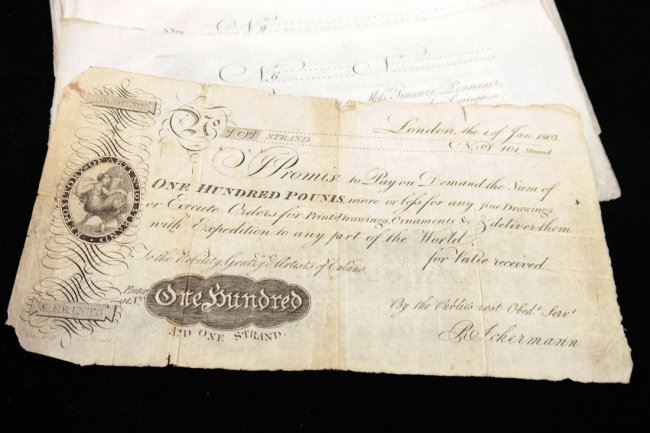 No
No No
Miss Sinecure, Pensioner,
Corruption
DRAWINGS
No 101 STRAND
London, the 1 of Jan. 1803.
No 101, Strand
I Promise to Pay on Demand the Sum of
ONE HUNDRED POUNDS, more or less for any fine Drawings
or Execute Orders for Prints, Drawings, Ornaments &c & deliver them
with Expedition to any part of the World.
To the Nobility, Gentry & Artists of
for Value received.
REPOSITORY OF ARTS 101 STRAND
One Hundred
AND ONE STRAND.
& PRINTS
By the Publics most Obedt. Servt.
R. Ackermann